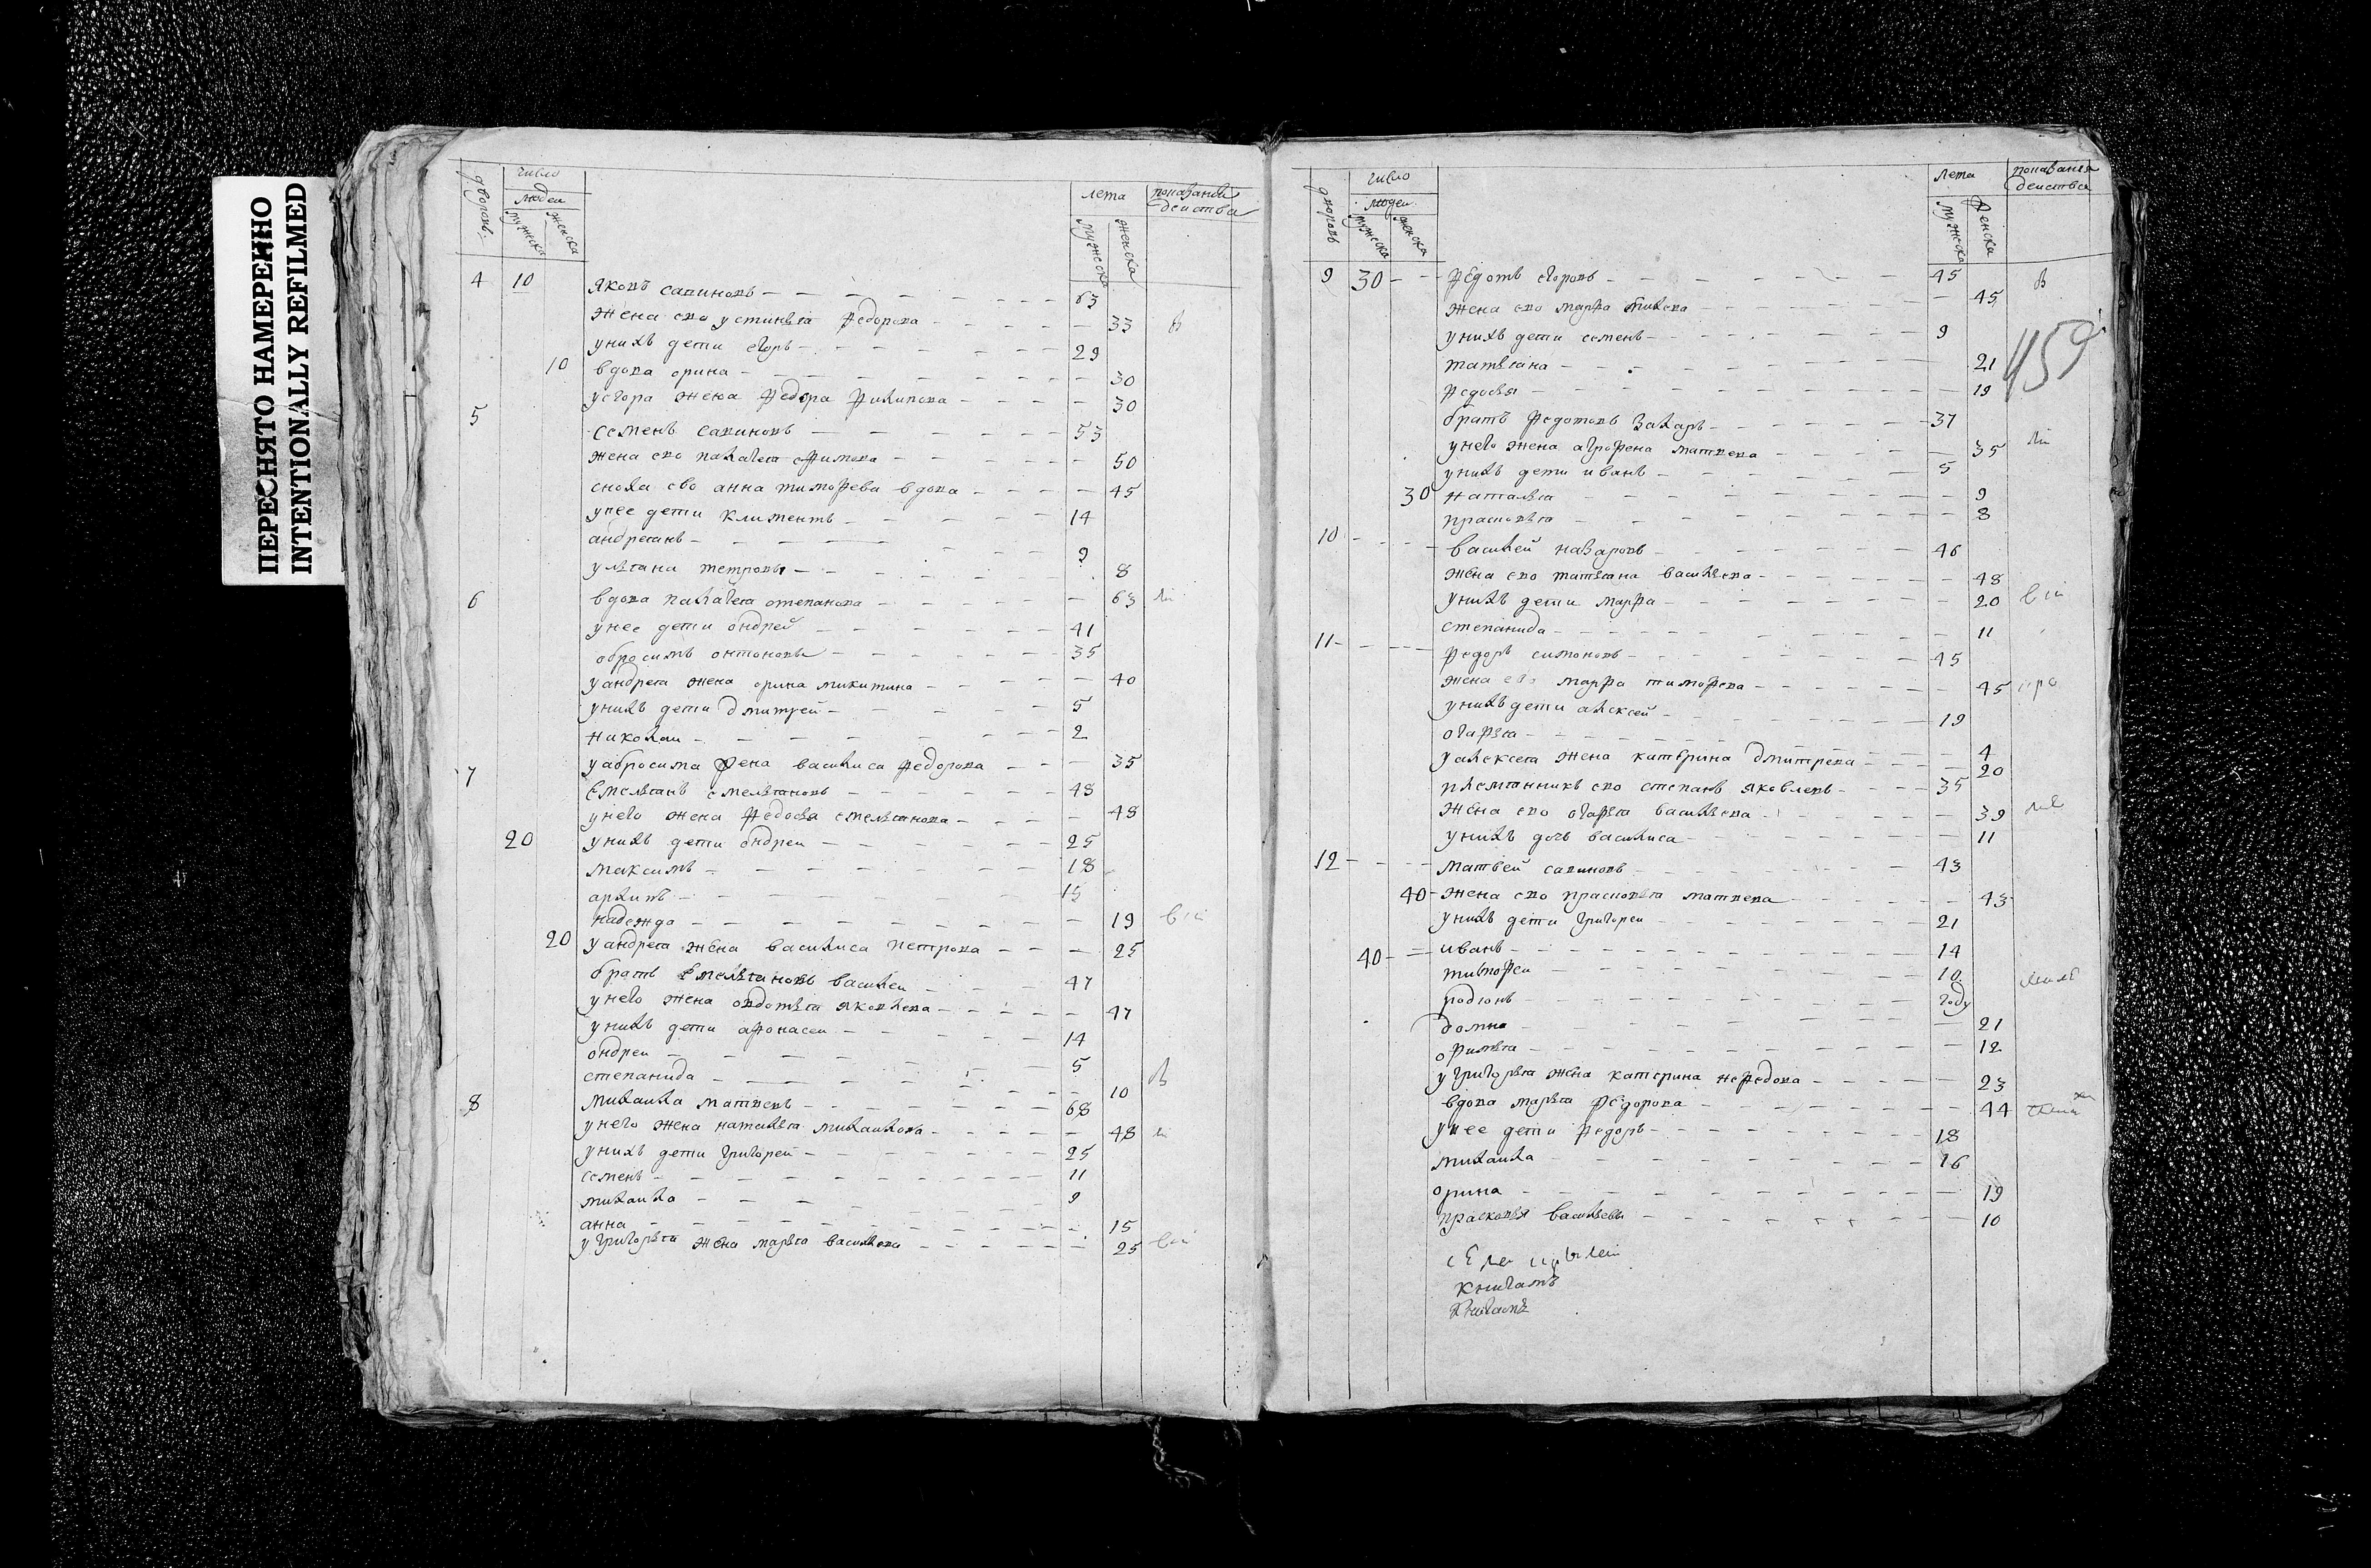 ПЕРЕСНЯТО НАМЕРЕННО
INTENTIONALLY REFILMED
дворовъ
число
людеи
мужеска
женска
лета
мужеска
женска
показание
деиства
4 10 яковъ савиновъ 63
жена ево устинья федорова 33
унихъ дети егоръ 29
10 вдова орина 30
уегора жена федора филипова 30
5 семенъ савиновъ 53
жена ево палагея ефимова 50
сноха ево анна тимофева вдова 45
унее дети климентъ 14
андреянъ 9
ульяна петровы 8
6 вдова палагея степанова 63
унее дети ондрей 41
обросимъ онтоновы 35
уандрея жена орина микитина 40
унихъ дети дмитрей 5
николаи 2
уабросима жена василиса федорова 35
7 емельянъ емельяновъ 48
унего жена федосья емельянова 48
20 унихъ дети ондреи 25
максимъ 18
архипъ 15
надежда 19
20 уандрея жена василиса петрова 25
братъ емельяновъ василеи 47
унего жена овдотья яковлева 47
унихъ дети афонасеи 14
ондреи 5
степанида 10
8 михаила матвевъ 68
унего жена наталья михаилова 48
унихъ дети григореи 25
семенъ 11
михаила 9
анна 15
угригорья жена марья василева 25
дворовъ
число
людеи
мужеска
женска
лета
мужеска
женска
показания
деиства
459
9 30 федотъ егоровъ 45
жена ево марфа 45
унихъ дети семенъ 9
татьяна 21
федосья 19
братъ федотовъ захаръ 37
унего жена агрофена матвева 35
унихъ дети иванъ 5
30 наталья 9
прасковья 8
10 василей назаровъ 46
жена ево татьяна васильева 48
унихъ дети марфа 20
степанида 11
11 федоръ симоновъ 45
жена ево марфа тимофева 45
унихъ дети алексей 19
огафья 4
уалексея жена катерина дмитрева 20
племянникъ ево степанъ яковлевъ 35
жена ево огафья васильева 39
унихъ дочь василиса 11
12 матвей савиновъ 43
40 жена ево прасковья матвева 43
унихъ дети григореи 21
40 иванъ 14
тимофеи 10
родионъ году
домна 21
офимья 12
угригорья жена катерина нефедова 23
вдова марья федорова 44
унее дети федоръ 18
михаила 16
орина 19
прасковья васильевы 10
книгамъ